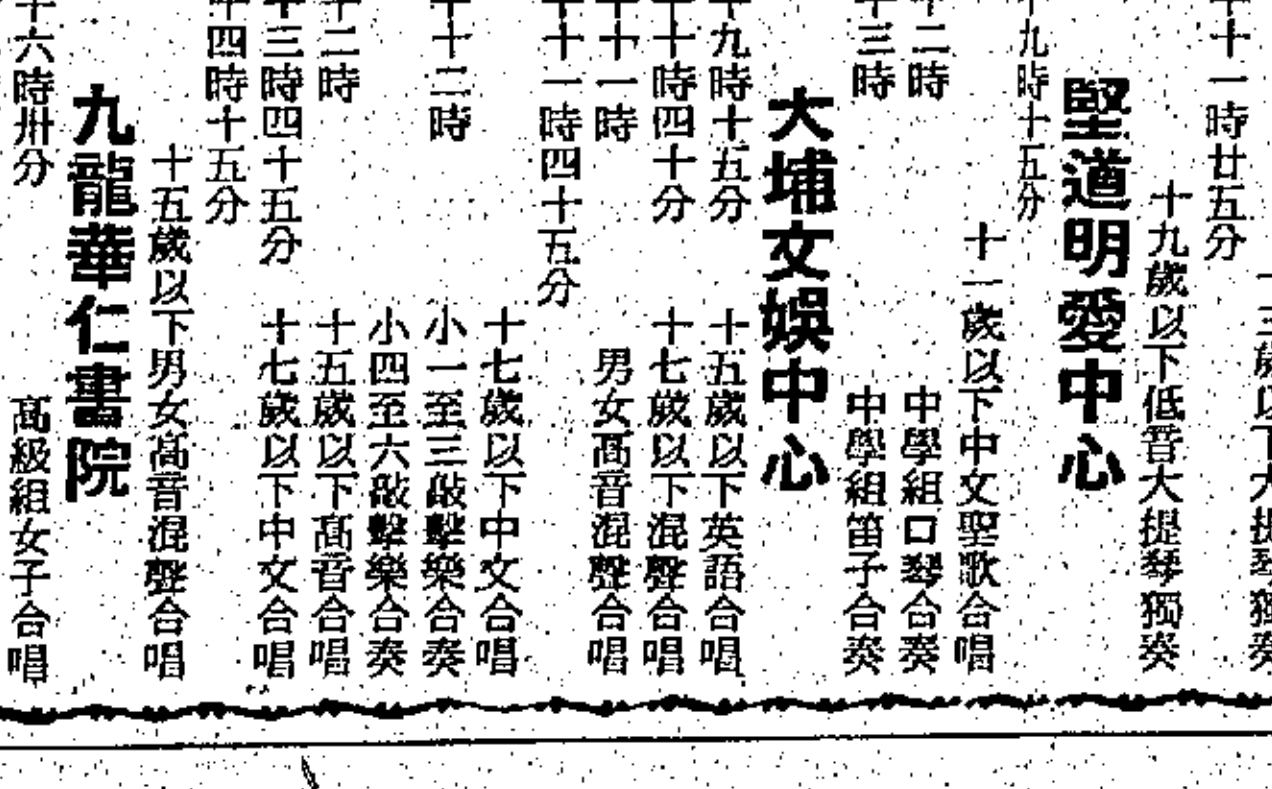 三歲以下大提琴獨奏
十一時廿五分
十九歲以下低音大提琴獨奏
堅道明愛中心
九時十五分
十一歲以下中文聖歌合唱
二時 中學組口琴合奏
三時 中學組笛子合奏
大埔文娛中心
九時十五分 十五歲以下英語合唱
十時四十分 十七歲以下混聲合唱
十一時 男女高音混聲合唱
十一時四十五分
十七歲以下中文合唱
十二時 小一至三敲擊樂合奏
小四至六敲擊樂合奏
二時 十五歲以下高音合唱
三時四十五分 十七歲以下中文合唱
四時十五分
十五歲以下男女高音混聲合唱
九龍華仁書院
六時卅分 高級組女子合唱